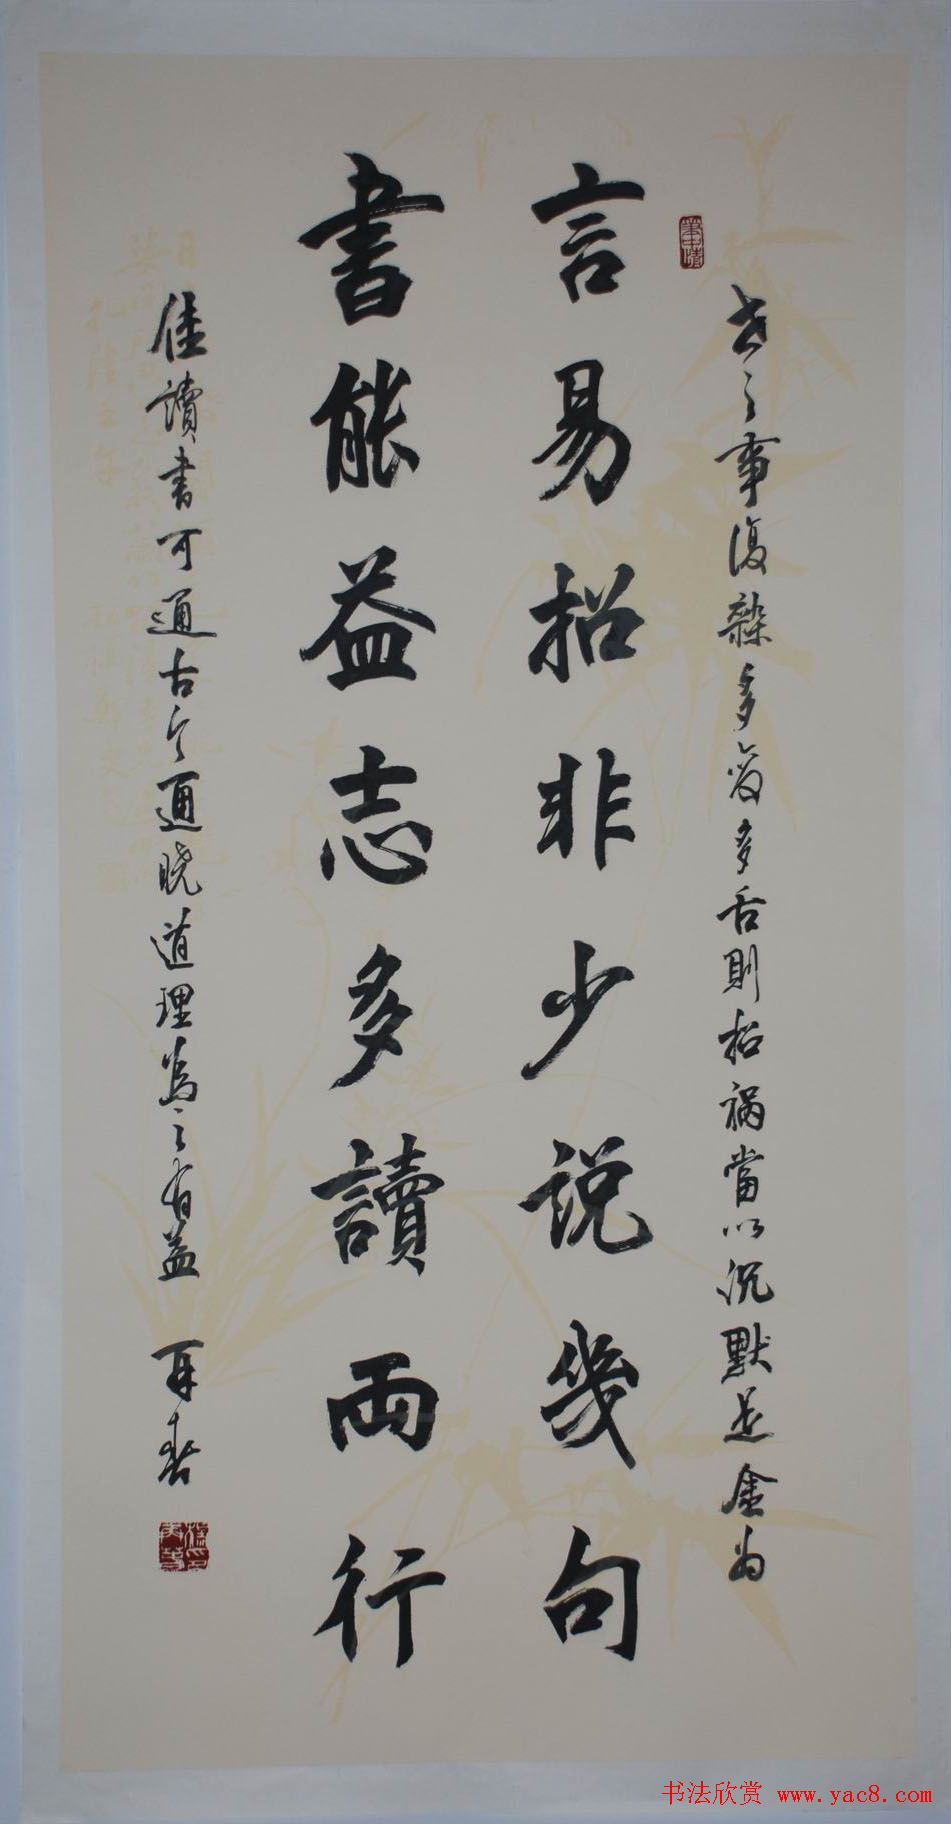 世之事復雜多變多舌則招禍當以沉默是金為
言易招非少说幾句
書能益志多讀两行
佳讀書可通古今通晓道理為之有益
書法欣赏 www.yac8.com